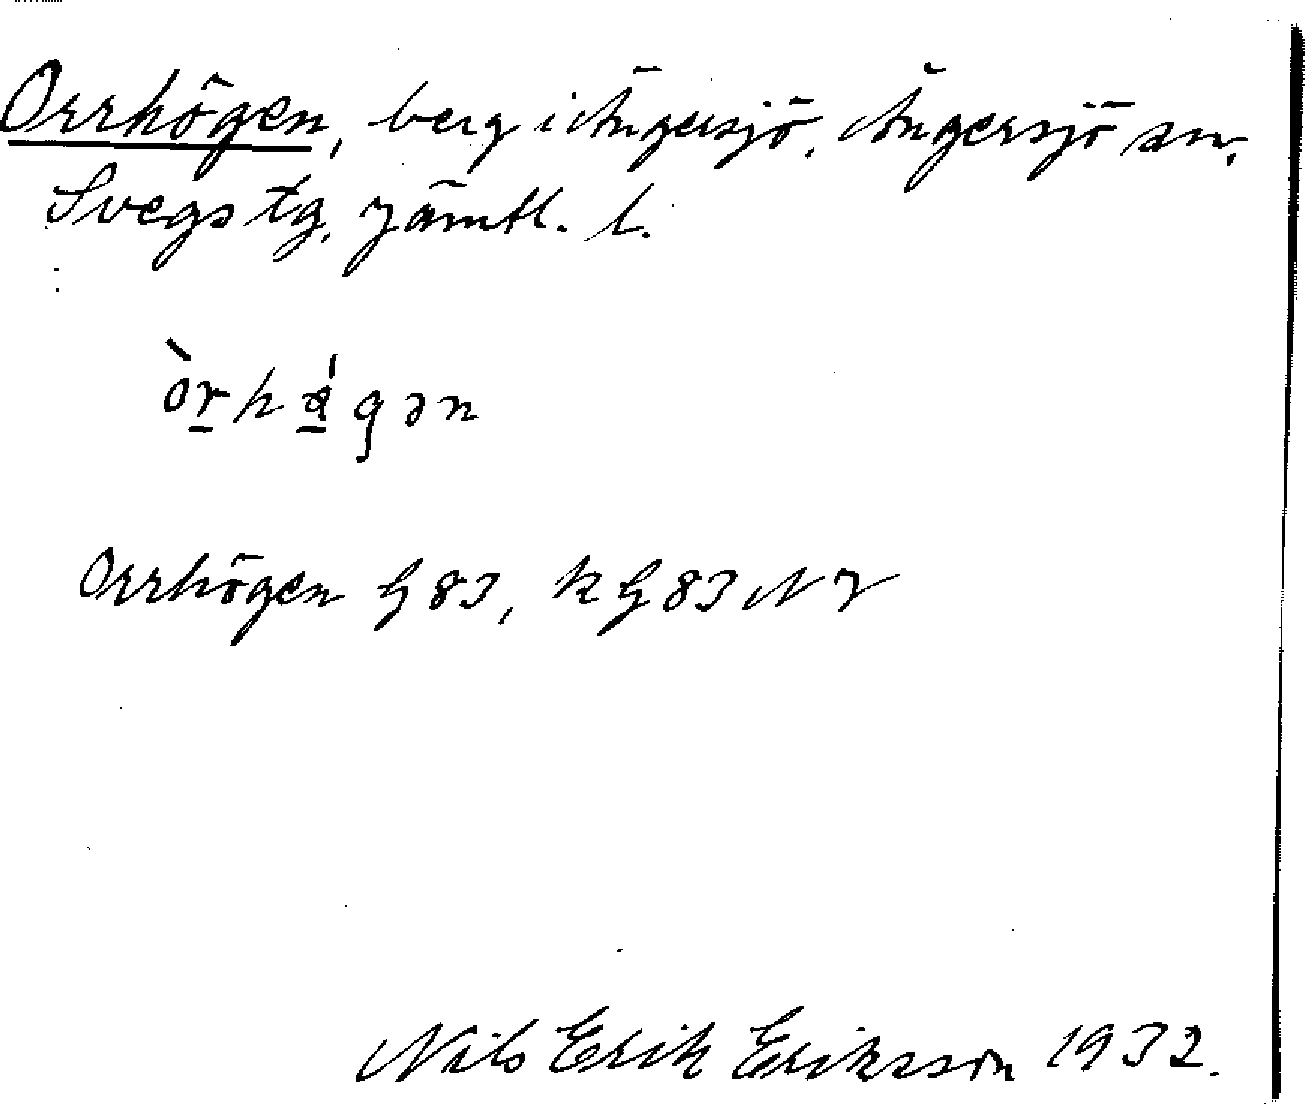 Orrhögen, berg i Ängersjö, Ängersjö sn,
Svegs tg, Jämtl. l.
Orrhögen G 83, k G 83 N J
Nils Erik Eriksson 1932.